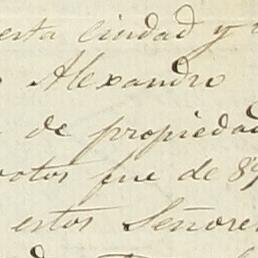 esta ciudad y
Alexandro
de propiedad
votos fue de 89
estos Señores